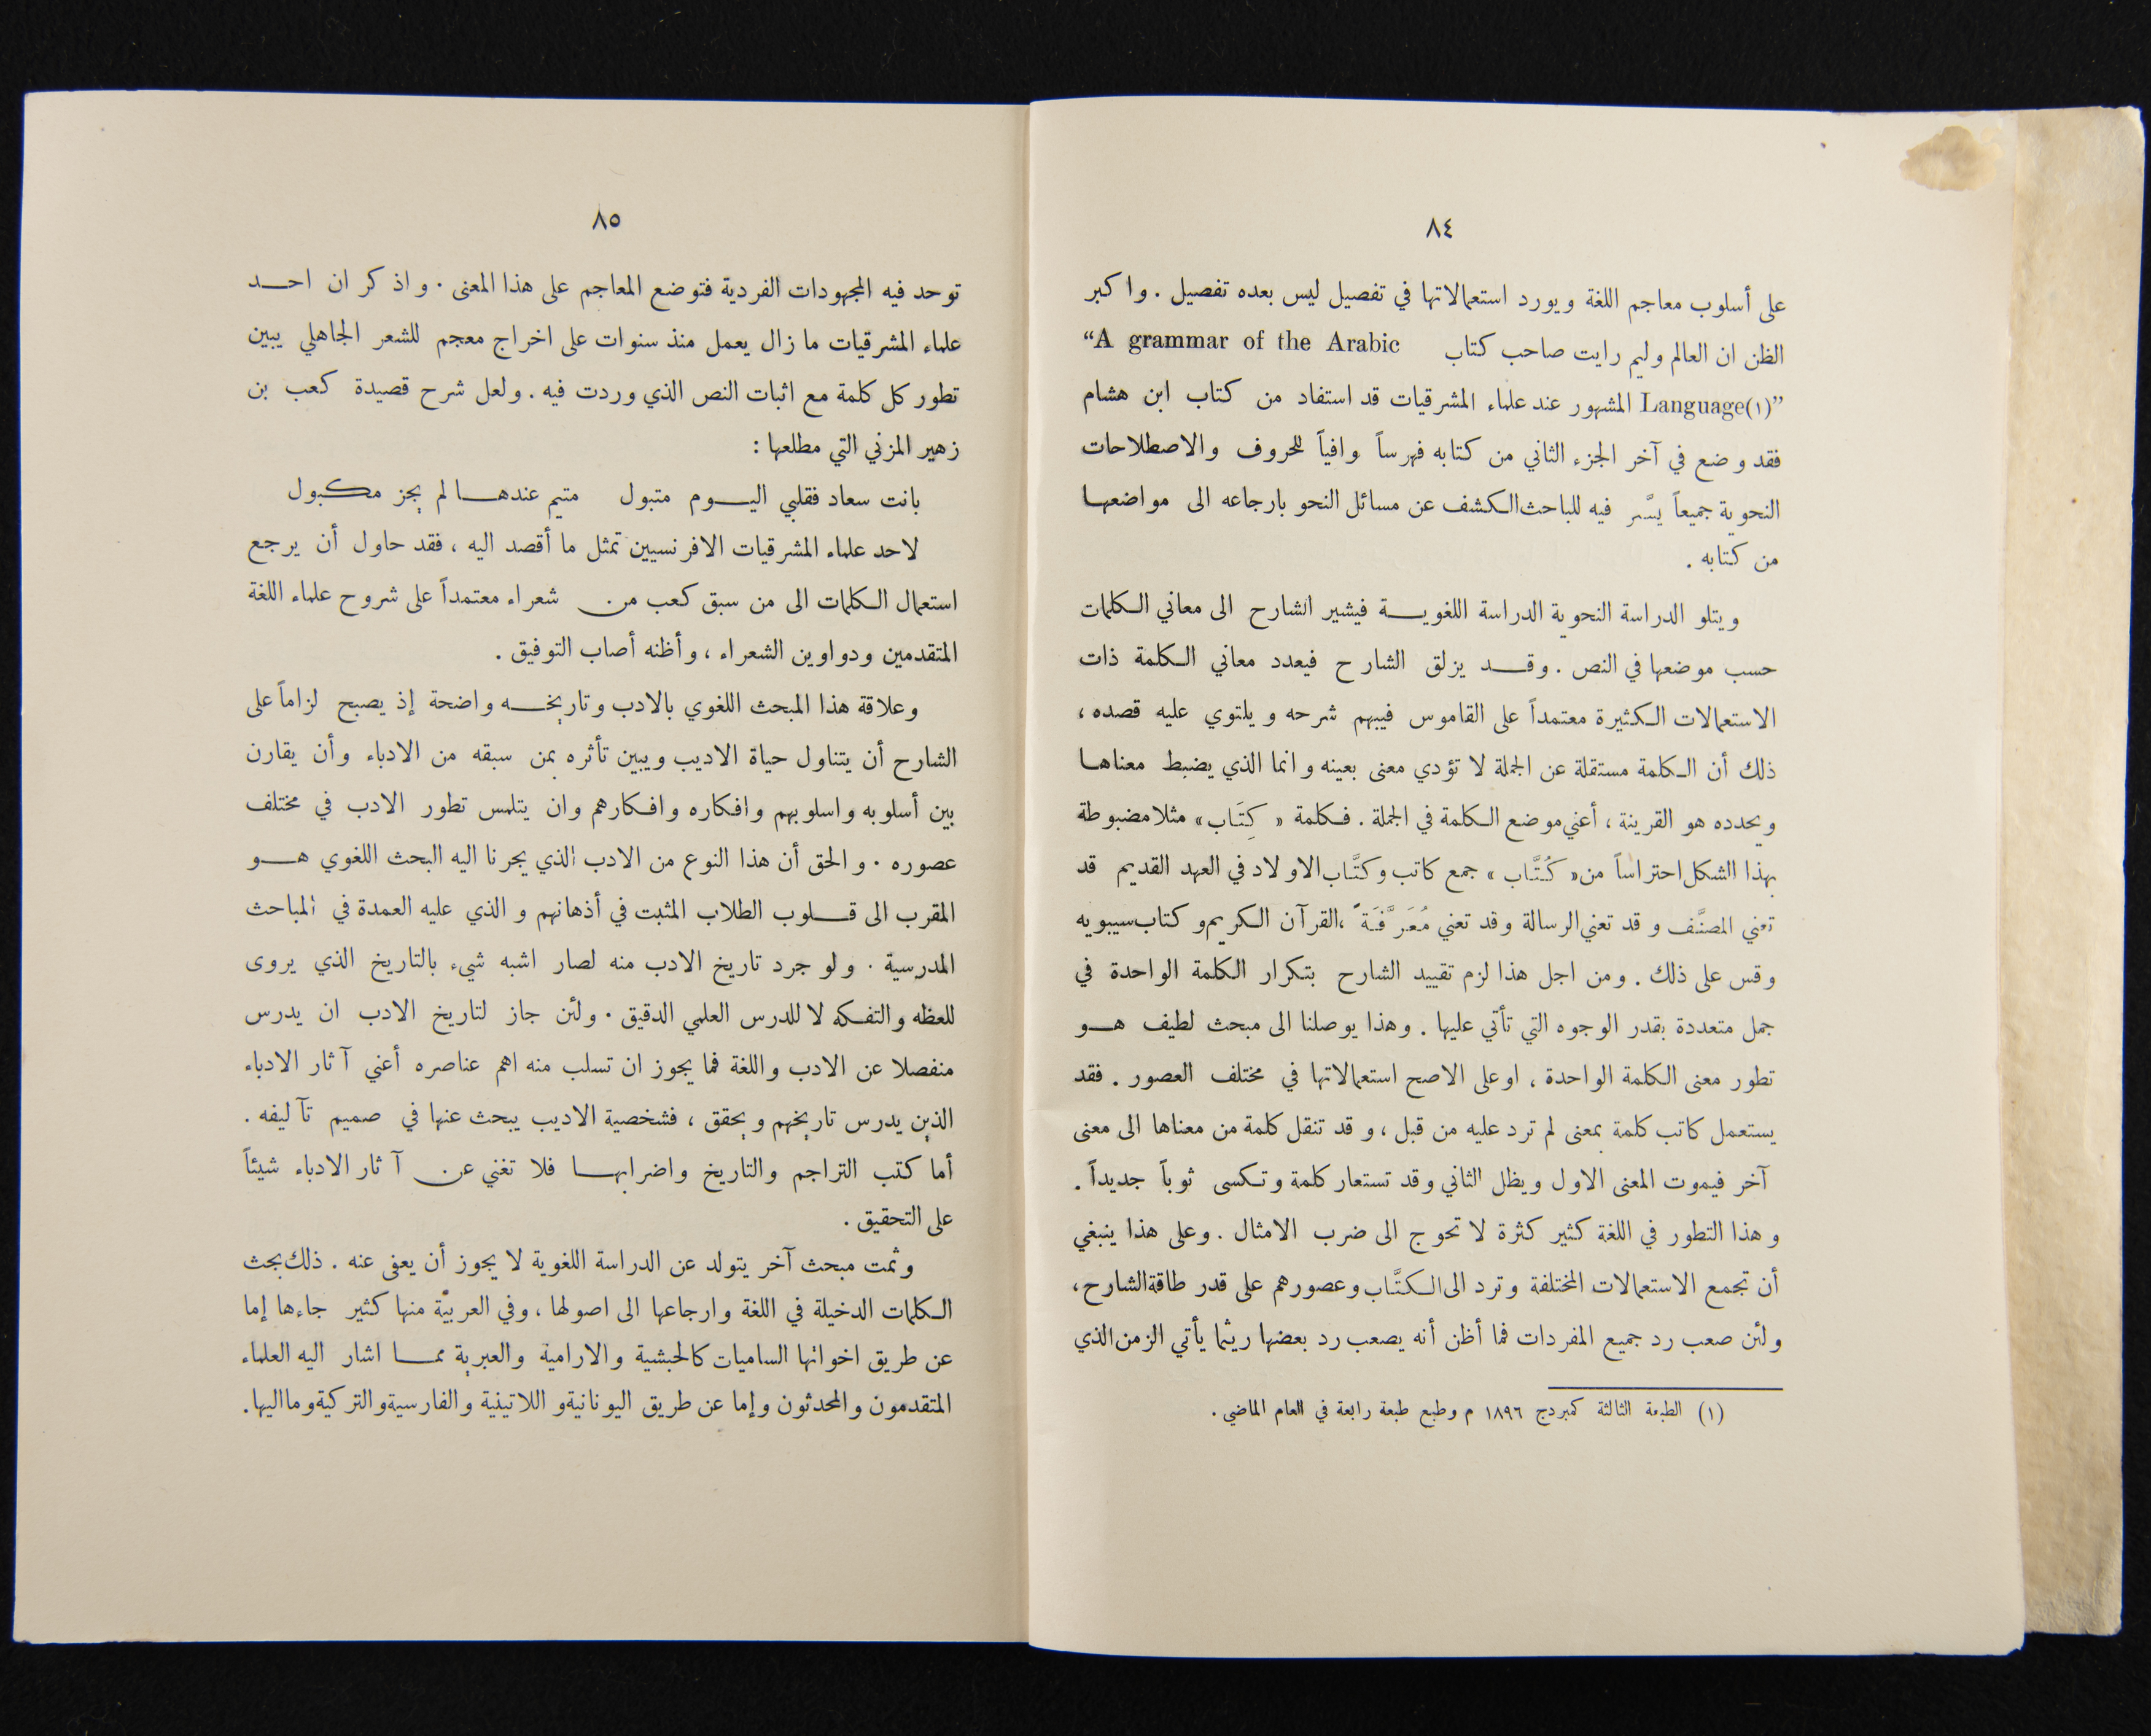 ٨٤
على أسلوب معاجم اللغة ويورد استعمالاتها في تفصيل ليس بعده تفصيل . واكبر
الظن ان العالم وليم رايت صاحب كتاب “A grammar of the Arabic
Language(١)” المشهور عند علماء المشرقيات قد استفاد من كتاب ابن هشام
فقد وضع في آخر الجزء الثاني من كتابه فهرساً وافياً للحروف والاصطلاحات
النحوية جميعاً يسَّر فيه للباحث الكشف عن مسائل النحو بارجاعه الى مواضعها
من كتابه .
ويتلو الدراسة النحوية الدراسة اللغوية فيشير الشارح الى معاني الكلمات
حسب موضعها في النص . وقد يزلق الشارح فيعدد معاني الكلمة ذات
الاستعمالات الكثيرة معتمداً على القاموس فيبهم شرحه ويلتوي عليه قصده ،
ذلك أن الكلمة مستقلة عن الجملة لا تؤدي معنى بعينه وانما الذي يضبط معناها
ويحدده هو القرينة ، أعني موضع الكلمة في الجملة . فكلمة « كِتَاب » مثلا مضبوطة
بهذا الشكل احتراساً من « كُتَّاب » جمع كاتب وكتَّاب الاولاد في العهد القديم قد
تعني المصنَّف وقد تعني الرسالة وقد تعني مُعَرَّفَةً ، القرآن الكريم وكتاب سيبويه
وقس على ذلك . ومن اجل هذا لزم تقييد الشارح بتكرار الكلمة الواحدة في
جمل متعددة بقدر الوجوه التي تأتي عليها . وهذا يوصلنا الى مبحث لطيف هو
تطور معنى الكلمة الواحدة ، او على الاصح استعمالاتها في مختلف العصور . فقد
يستعمل كاتب كلمة بمعنى لم ترد عليه من قبل ، وقد تنقل كلمة من معناها الى معنى
آخر فيموت المعنى الاول ويظل الثاني وقد تستعار كلمة وتكسى ثوباً جديداً .
وهذا التطور في اللغة كثير كثرة لا تحوج الى ضرب الامثال . وعلى هذا ينبغي
أن تجمع الاستعمالات المختلفة وترد الى الكتَّاب وعصورهم على قدر طاقة الشارح ،
ولئن صعب رد جميع المفردات فما أظن أنه يصعب رد بعضها ريثما يأتي الزمن الذي
(١) الطبعة الثالثة كمبردج ١٨٩٦ م وطبع طبعة رابعة في العام الماضي .
٨٥
توحد فيه المجهودات الفردية فتوضع المعاجم على هذا المعنى . واذكر ان احد
علماء المشرقيات ما زال يعمل منذ سنوات على اخراج معجم للشعر الجاهلي يبين
تطور كل كلمة مع اثبات النص الذي وردت فيه . ولعل شرح قصيدة كعب بن
زهير المزني التي مطلعها :
بانت سعاد فقلبي اليوم متبول متيم عندها لم يجز مكبول
لاحد علماء المشرقيات الافرنسيين تمثل ما أقصد اليه ، فقد حاول أن يرجع
استعمال الكلمات الى من سبق كعب من شعراء معتمداً على شروح علماء اللغة
المتقدمين ودواوين الشعراء ، وأظنه أصاب التوفيق .
وعلاقة هذا المبحث اللغوي بالادب وتاريخه واضحة إذ يصبح لزاماً على
الشارح أن يتناول حياة الاديب ويبين تأثره بمن سبقه من الادباء وأن يقارن
بين أسلوبه واسلوبهم وافكاره وافكارهم وان يتلمس تطور الادب في مختلف
عصوره . والحق أن هذا النوع من الادب الذي يجرنا اليه البحث اللغوي هو
المقرب الى قلوب الطلاب المثبت في أذهانهم والذي عليه العمدة في المباحث
المدرسية . ولو جرد تاريخ الادب منه لصار اشبه شيء بالتاريخ الذي يروى
للعظه والتفكه لا للدرس العلمي الدقيق . ولئن جاز لتاريخ الادب ان يدرس
منفصلا عن الادب واللغة فما يجوز ان تسلب منه اهم عناصره أعني آثار الادباء
الذين يدرس تاريخهم ويحقق ، فشخصية الاديب يبحث عنها في صميم تآليفه .
أما كتب التراجم والتاريخ واضرابها فلا تغني عن آثار الادباء شيئاً
على التحقيق .
وثمت مبحث آخر يتولد عن الدراسة اللغوية لا يجوز أن يعفى عنه . ذلك بحث
الكلمات الدخيلة في اللغة وارجاعها الى اصولها ، وفي العربيَّة منها كثير جاءها إما
عن طريق اخواتها الساميات كالحبشية والارامية والعبرية مما اشار اليه العلماء
المتقدمون والمحدثون وإما عن طريق اليونانية واللاتينية والفارسية والتركية وما اليها .